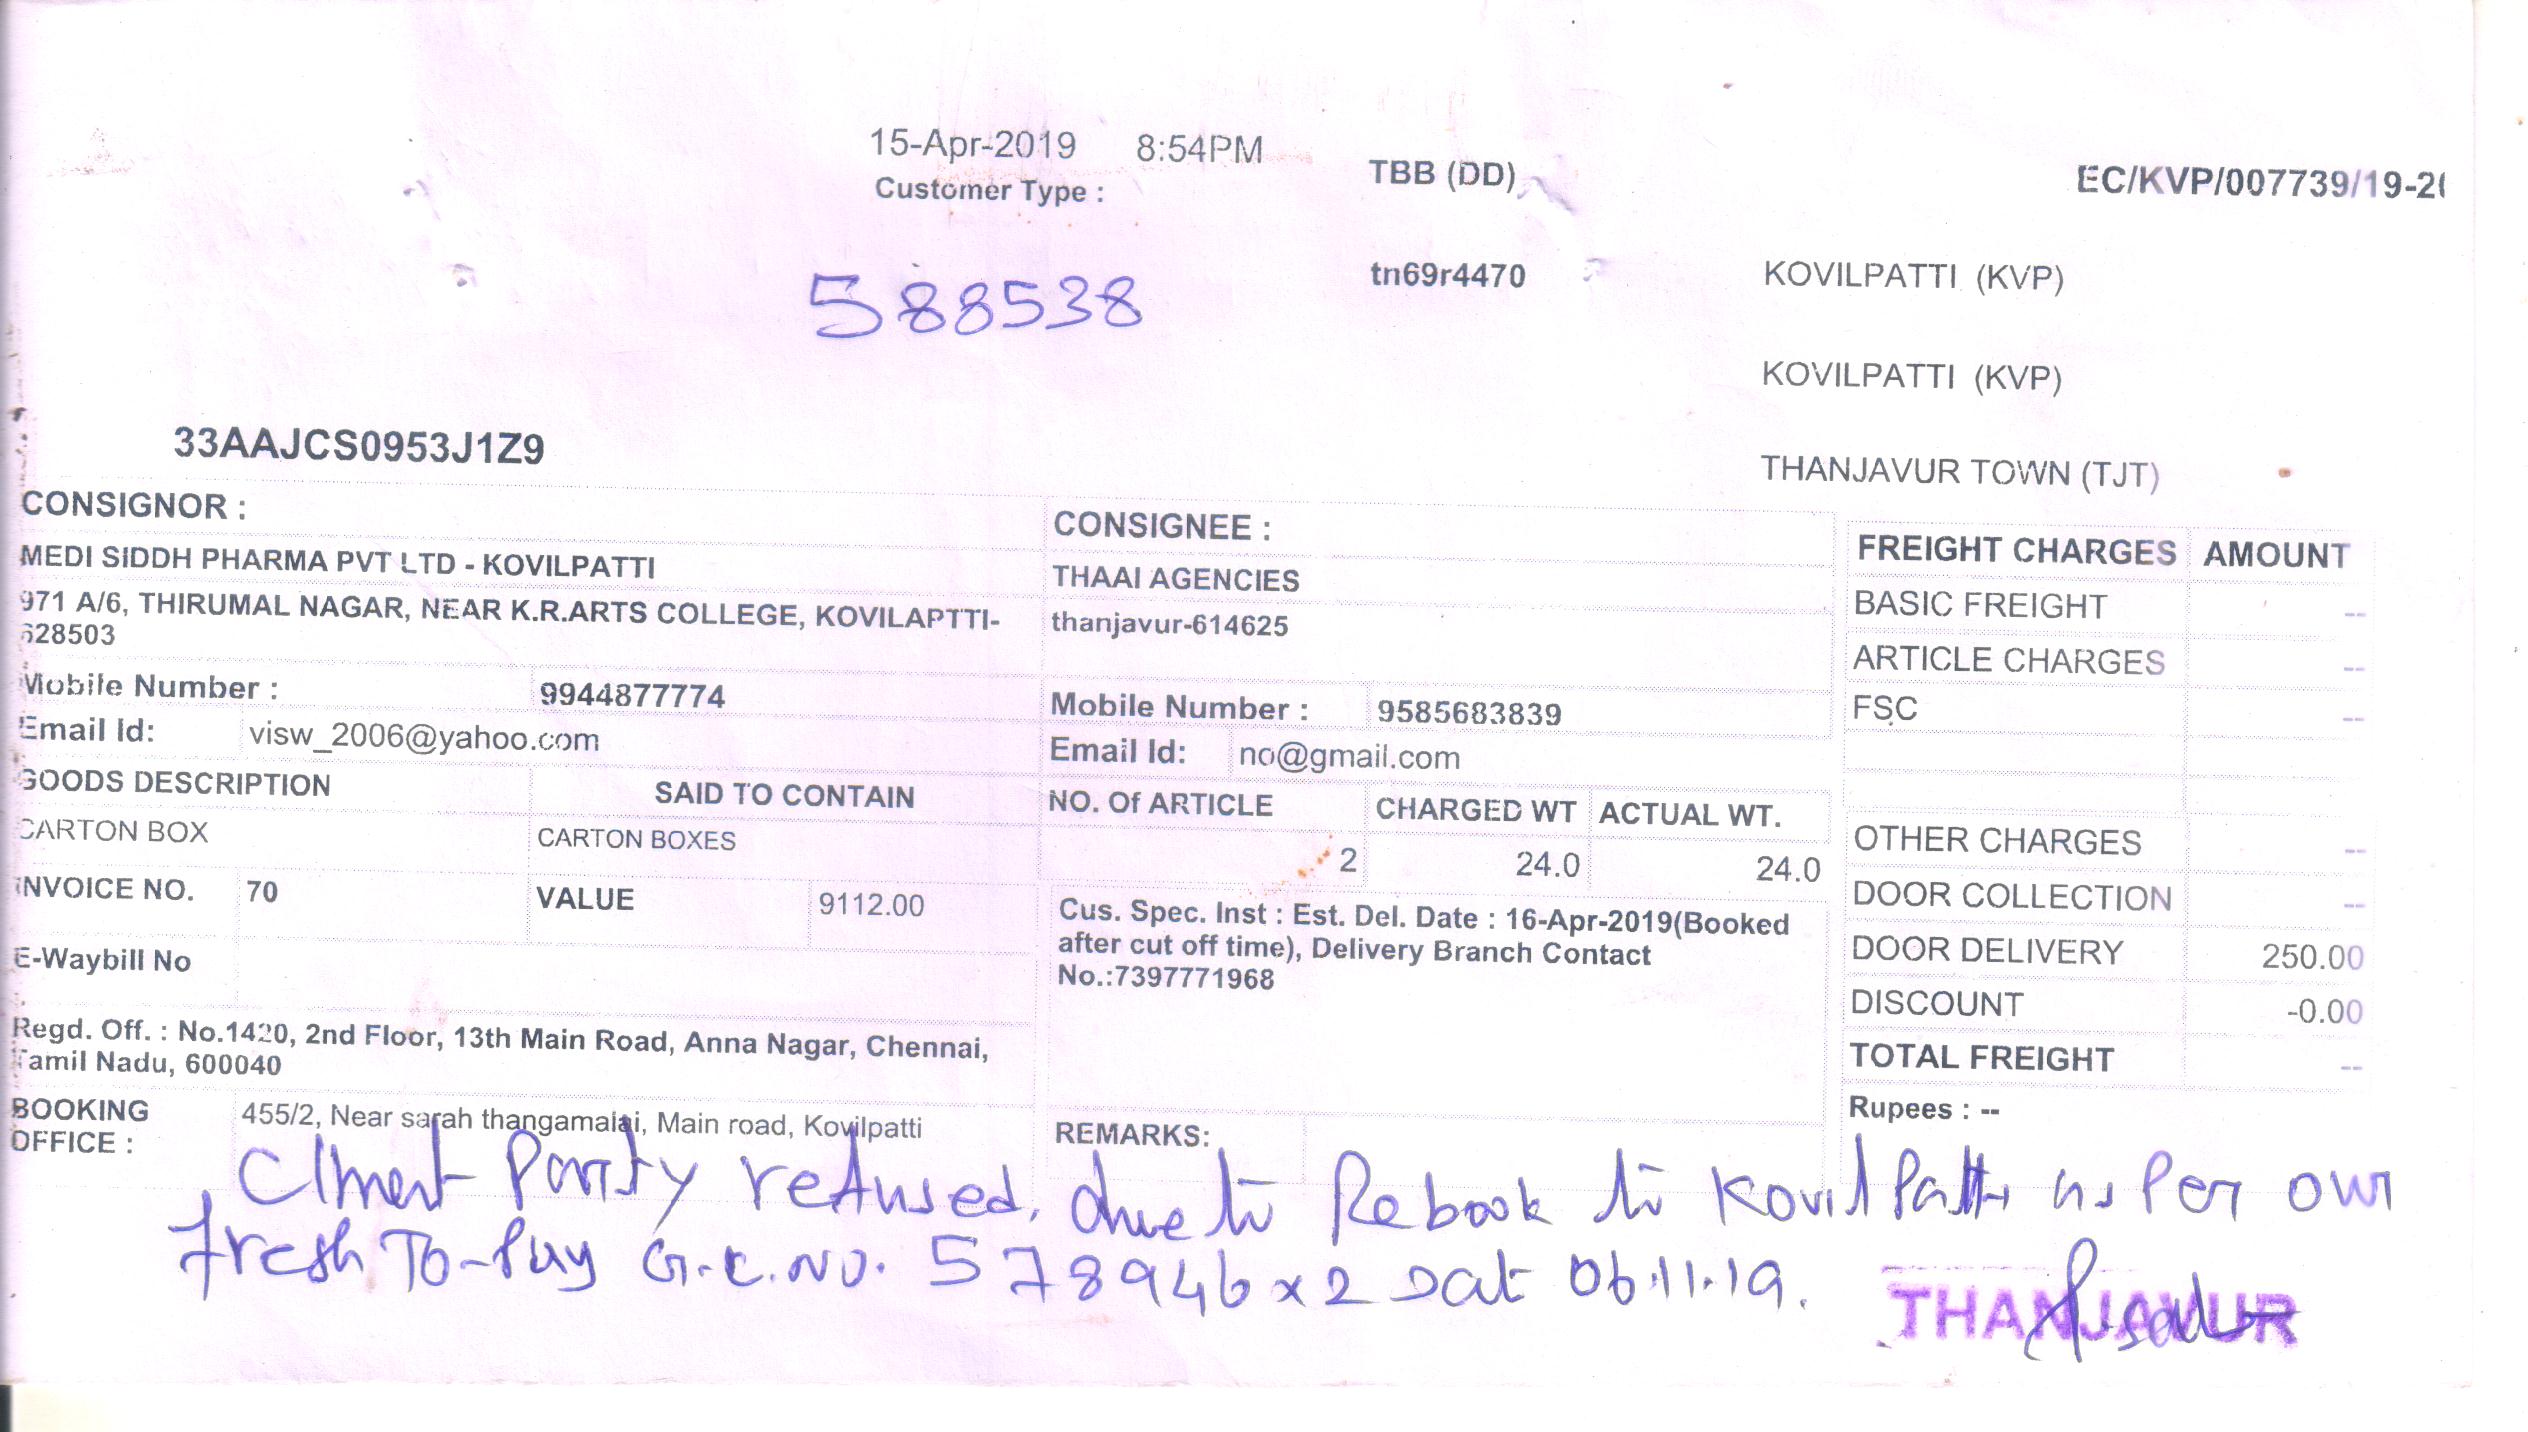 15-Apr-2019 8:54PM
Customer Type :
TBB (DD)
EC/KVP/007739/19-2
588538
tn69r4470
KOVILPATTI (KVP)
KOVILPATTI (KVP)
33AAJCS0953J1Z9
THANJAVUR TOWN (TJT)
CONSIGNOR :
MEDI SIDDH PHARMA PVT LTD - KOVILPATTI
971 A/6, THIRUMAL NAGAR, NEAR K.R.ARTS COLLEGE, KOVILAPTTI-
628503
Mobile Number : 9944877774
Email Id: visw_2006@yahoo.com
CONSIGNEE :
THAAI AGENCIES
thanjavur-614625
Mobile Number : 9585683839
Email Id: no@gmail.com
GOODS DESCRIPTION SAID TO CONTAIN NO. Of ARTICLE CHARGED WT ACTUAL WT.
CARTON BOX CARTON BOXES 2 24.0 24.0
INVOICE NO. 70 VALUE 9112.00
E-Waybill No
Cus. Spec. Inst : Est. Del. Date : 16-Apr-2019(Booked
after cut off time), Delivery Branch Contact
No.:7397771968
Regd. Off. : No.1420, 2nd Floor, 13th Main Road, Anna Nagar, Chennai,
Tamil Nadu, 600040
BOOKING
OFFICE :
455/2, Near sarah thangamalai, Main road, Kovilpatti
REMARKS:
FREIGHT CHARGES AMOUNT
BASIC FREIGHT --
ARTICLE CHARGES --
FSC --
OTHER CHARGES --
DOOR COLLECTION --
DOOR DELIVERY 250.00
DISCOUNT -0.00
TOTAL FREIGHT --
Rupees : --
Party refused, due to Rebook to Kovilpatti as Per our
fresh To-Pay G.C.No. 578946 x 2 Dat 06.11.19.
THANJAVUR